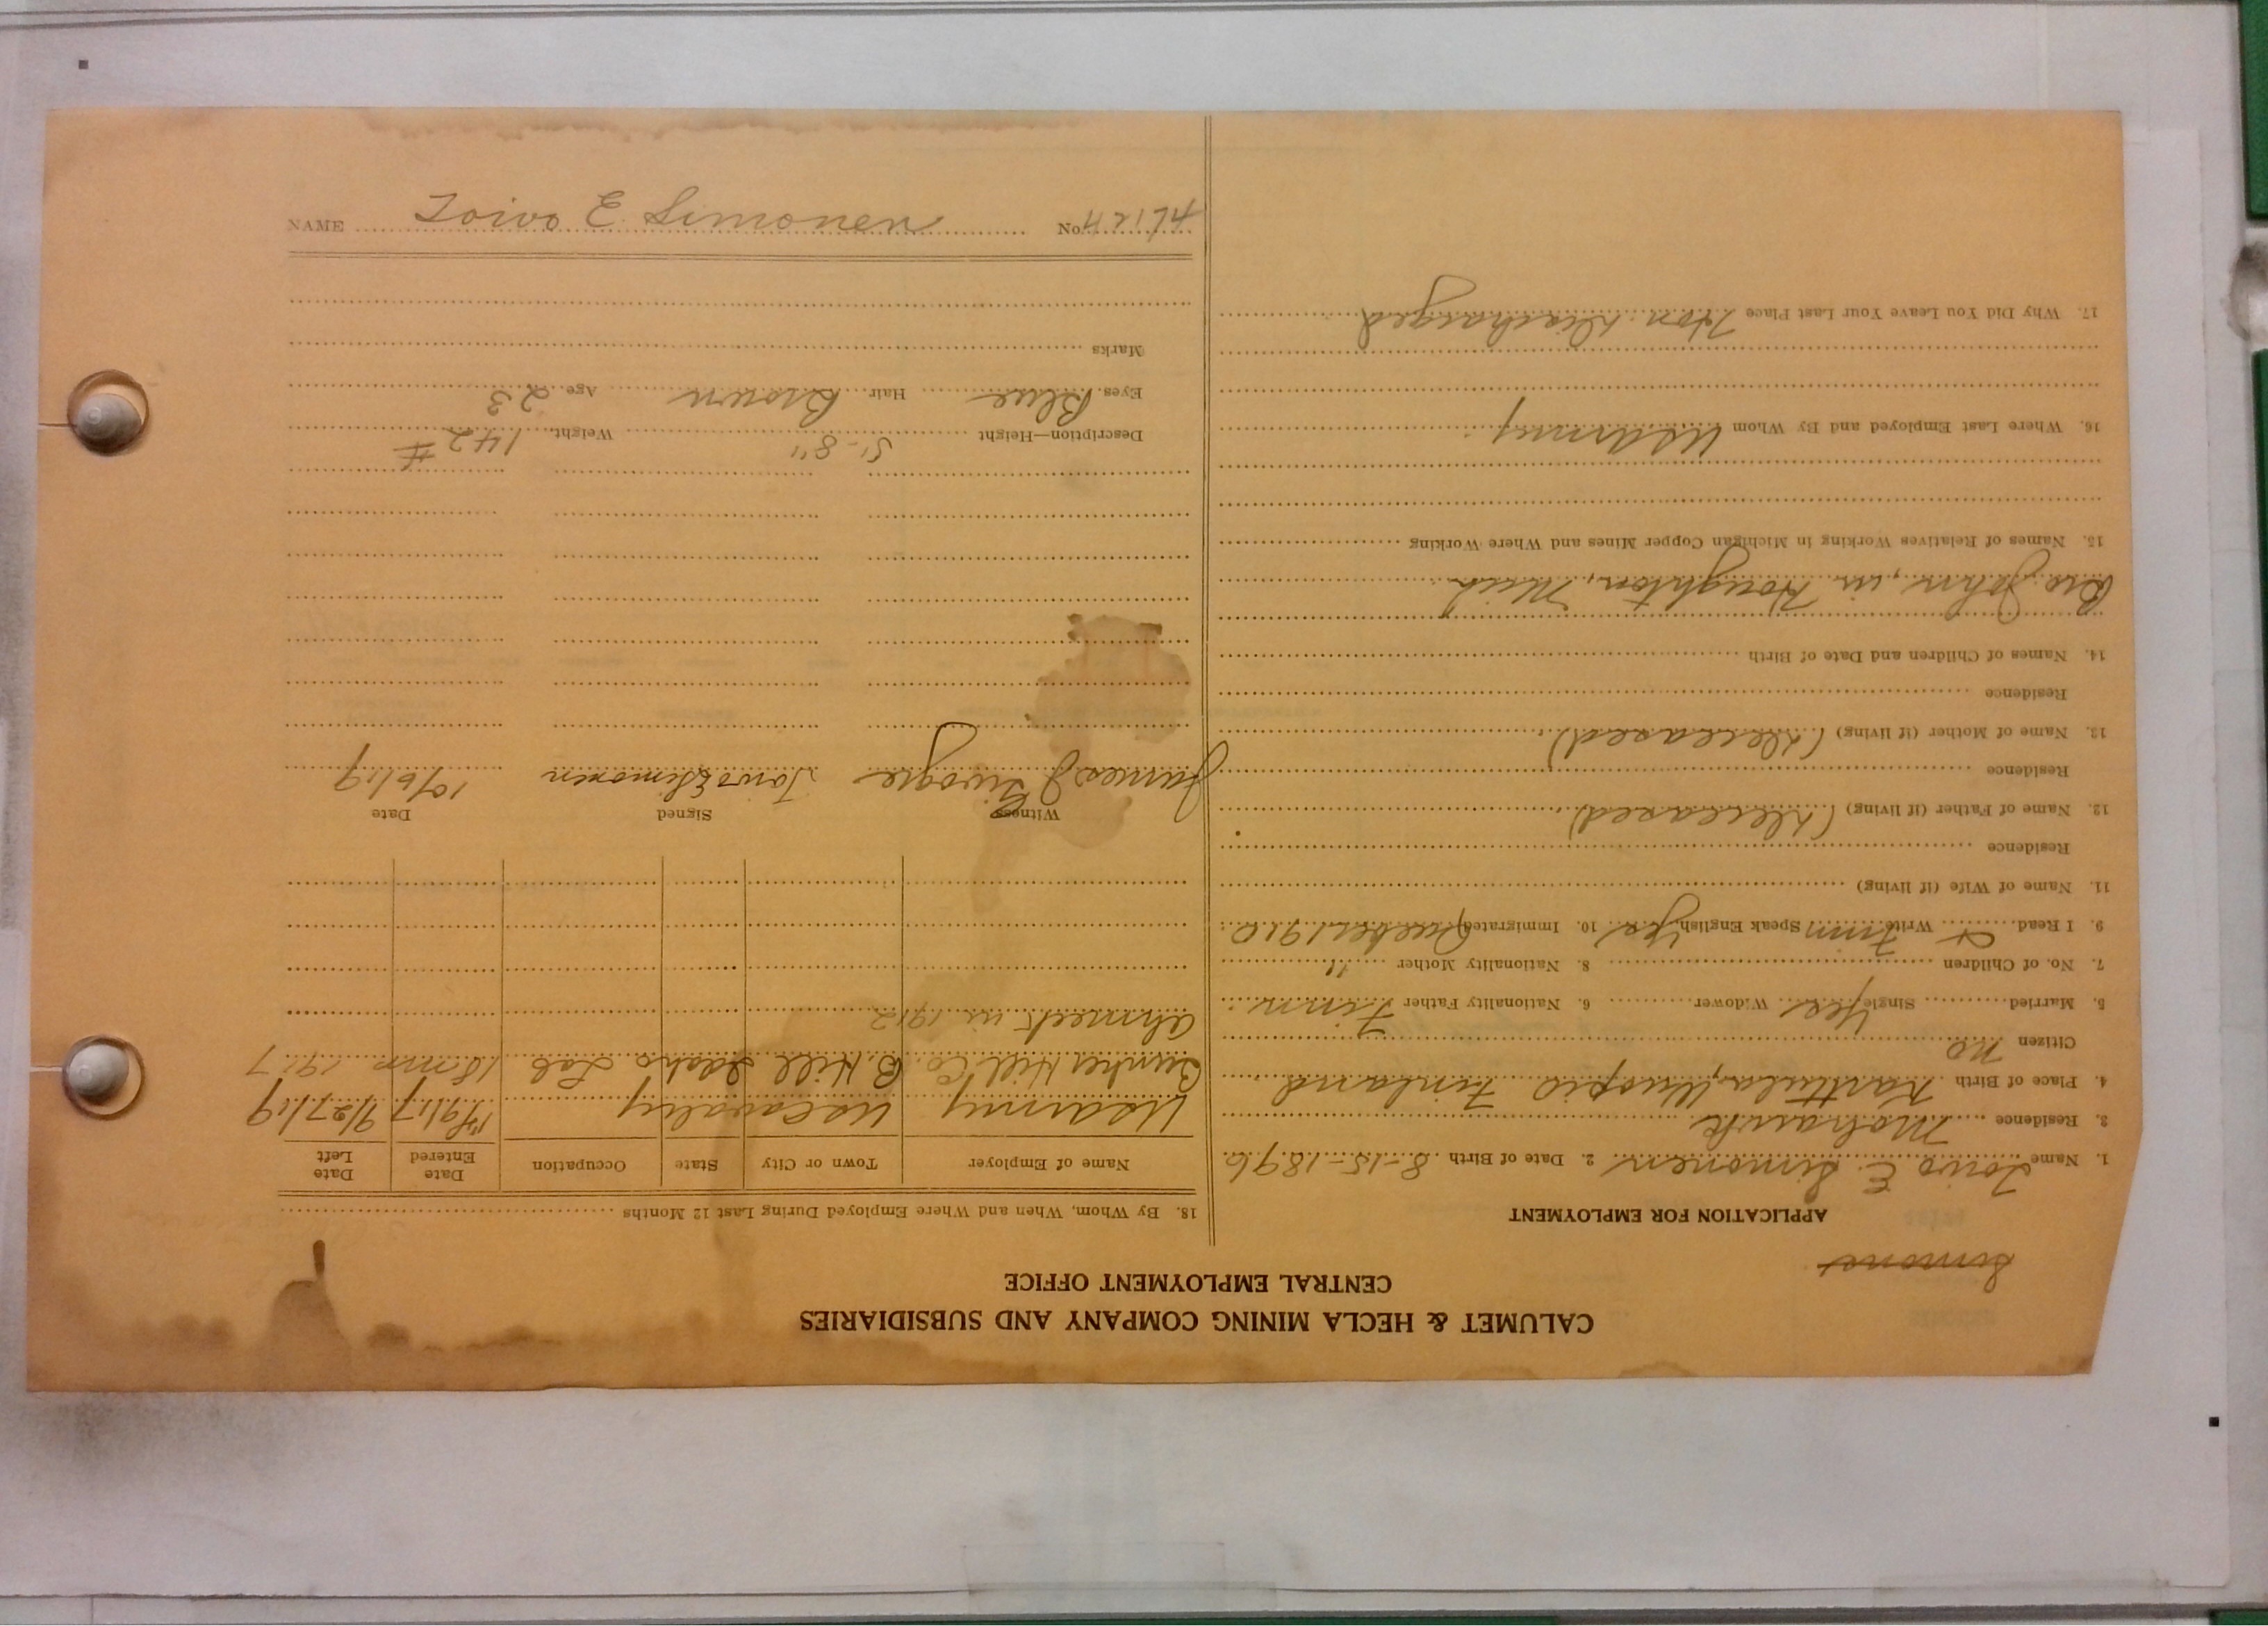 CALUMET & HECLA MINING COMPANY AND SUBSIDIARIES
CENTRAL EMPLOYMENT OFFICE
APPLICATION FOR EMPLOYMENT
1. Name Toivo E. Simonen 2. Date of Birth 8-15-1896
3. Residence Mohawk
4. Place of Birth Karttula, Kuopio Finland
Citizen no
5. Married Single Yes Widower 6. Nationality Father Finn
7. No. of Children 8. Nationality Mother "
9. I Read Write Finn Speak English Yes 10. Immigrated Quebec 1910
11. Name of Wife (if living)
Residence
12. Name of Father (if living) (Deceased)
Residence
13. Name of Mother (if living) (Deceased)
Residence
14. Names of Children and Date of Birth
Bro John, in Houghton, Mich
15. Names of Relatives Working in Michigan Copper Mines and Where Working
16. Where Last Employed and By Whom US Army
17. Why Did You Leave Your Last Place Hon. Discharged
18. By Whom, When and Where Employed During Last 12 Months
Name of Employer Town or City State Occupation Date Entered Date Left
US Army US Cavalry 9/27/19
Bunker Hill Co. B. Hill Idaho Lab 18 mo 1917
Ahmeek in 1912
Witness Signed Date
James J Toivo E Simonen 10/6/19
Description—Height 5'-8" Weight 142 #
Eyes Blue Hair Brown Age 23
Marks
NAME Toivo E. Simonen No.